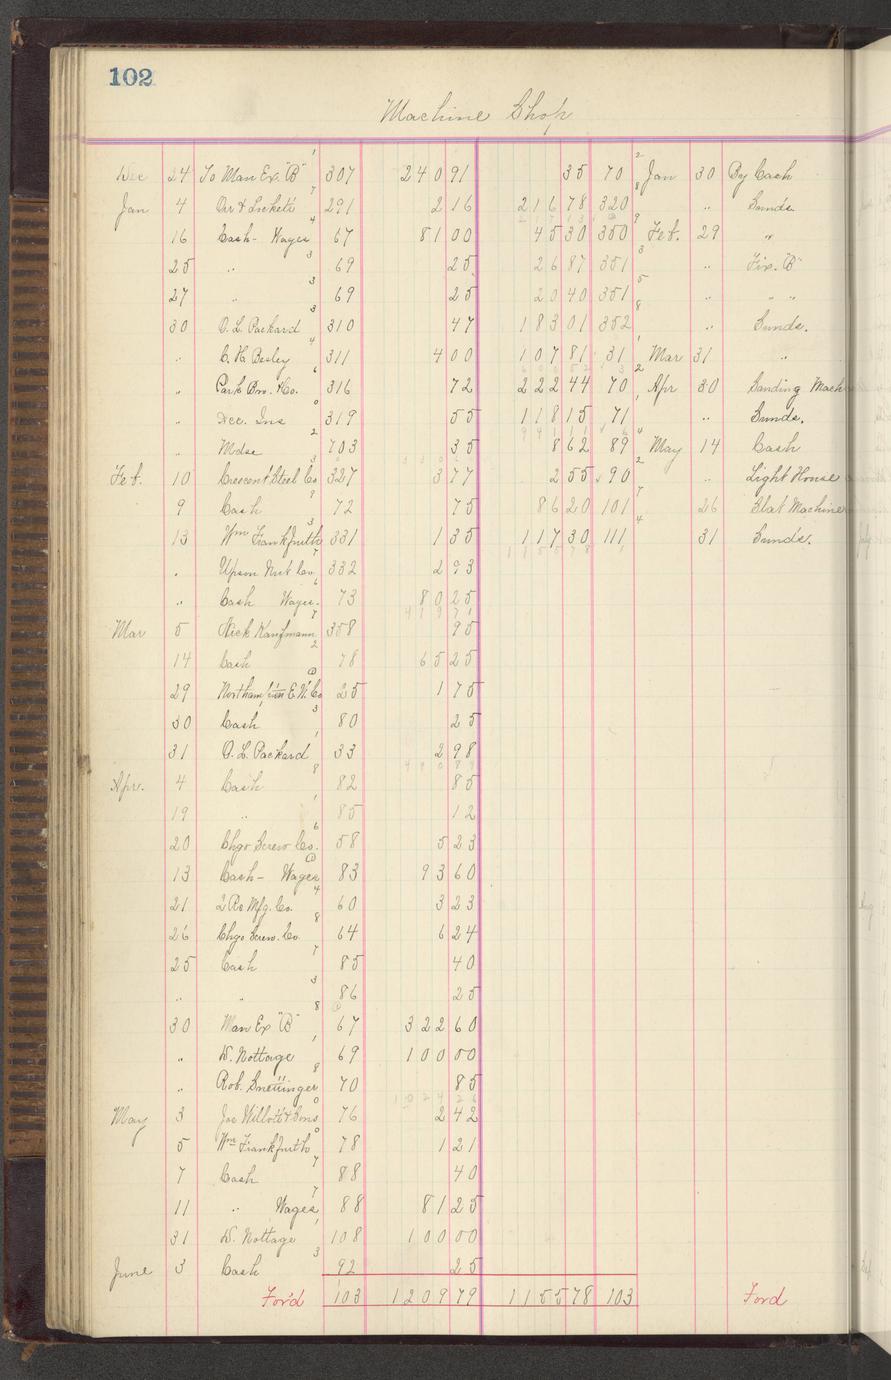 102
Machine Shop
Dec 24 To Man Ex. "B" 307 240 91 35 70 Jan 30 By Cash
Jan 4 Orr & Lockett 291 2 16 216 78 320 " Sunds.
16 Cash - Wages 67 81 00 45 30 350 Feb. 29 "
25 " 69 25 26 87 351 " Fix. "B"
27 " 69 25 20 40 351 " " "
30 O. L. Packard 310 47 183 01 352 " Sunds.
" C. H. Besley 311 4 00 107 81 31 Mar 31 "
" Park Bro. & Co. 316 72 222 44 70 Apr 30 Sanding Mach
" Acc. Ins 319 55 118 15 71 " Sunds.
" Mdse 703 35 8 62 89 May 14 Cash
Feb. 10 Crescent Steel Co 327 3 77 2 55 90 " Light House
9 Cash 72 75 86 20 101 26 Slat Machine
13 Wm Frankfurth 331 1 35 117 30 111 31 Sunds.
" Upson Nut Co. 332 2 93
" Cash Wages. 73 80 25
Mar 5 Nick Kaufmann 358 95
14 Cash 78 65 25
29 Northampton E. W. Co 25 1 75
30 Cash 80 25
31 O. L. Packard 33 2 98
Apr. 4 Cash 82 85
19 " 85 12
20 Chgo Screw Co. 58 5 23
13 Cash - Wages 83 93 60
21 Mfg. Co. 60 3 23
26 Chgo Screw. Co. 64 6 24
25 Cash 85 40
" " 86 25
30 Man Ex "B" 67 322 60
" W. Nottage 69 100 00
" Rob. 70 85
May 3 Joe Willott & Sons 76 2 42
5 Wm Frankfurth 78 1 21
7 Cash 88 40
11 " Wages 88 81 25
31 W. Nottage 108 100 00
June 3 Cash 92 25
For'd 103 1209 79 1155 78 103 Ford